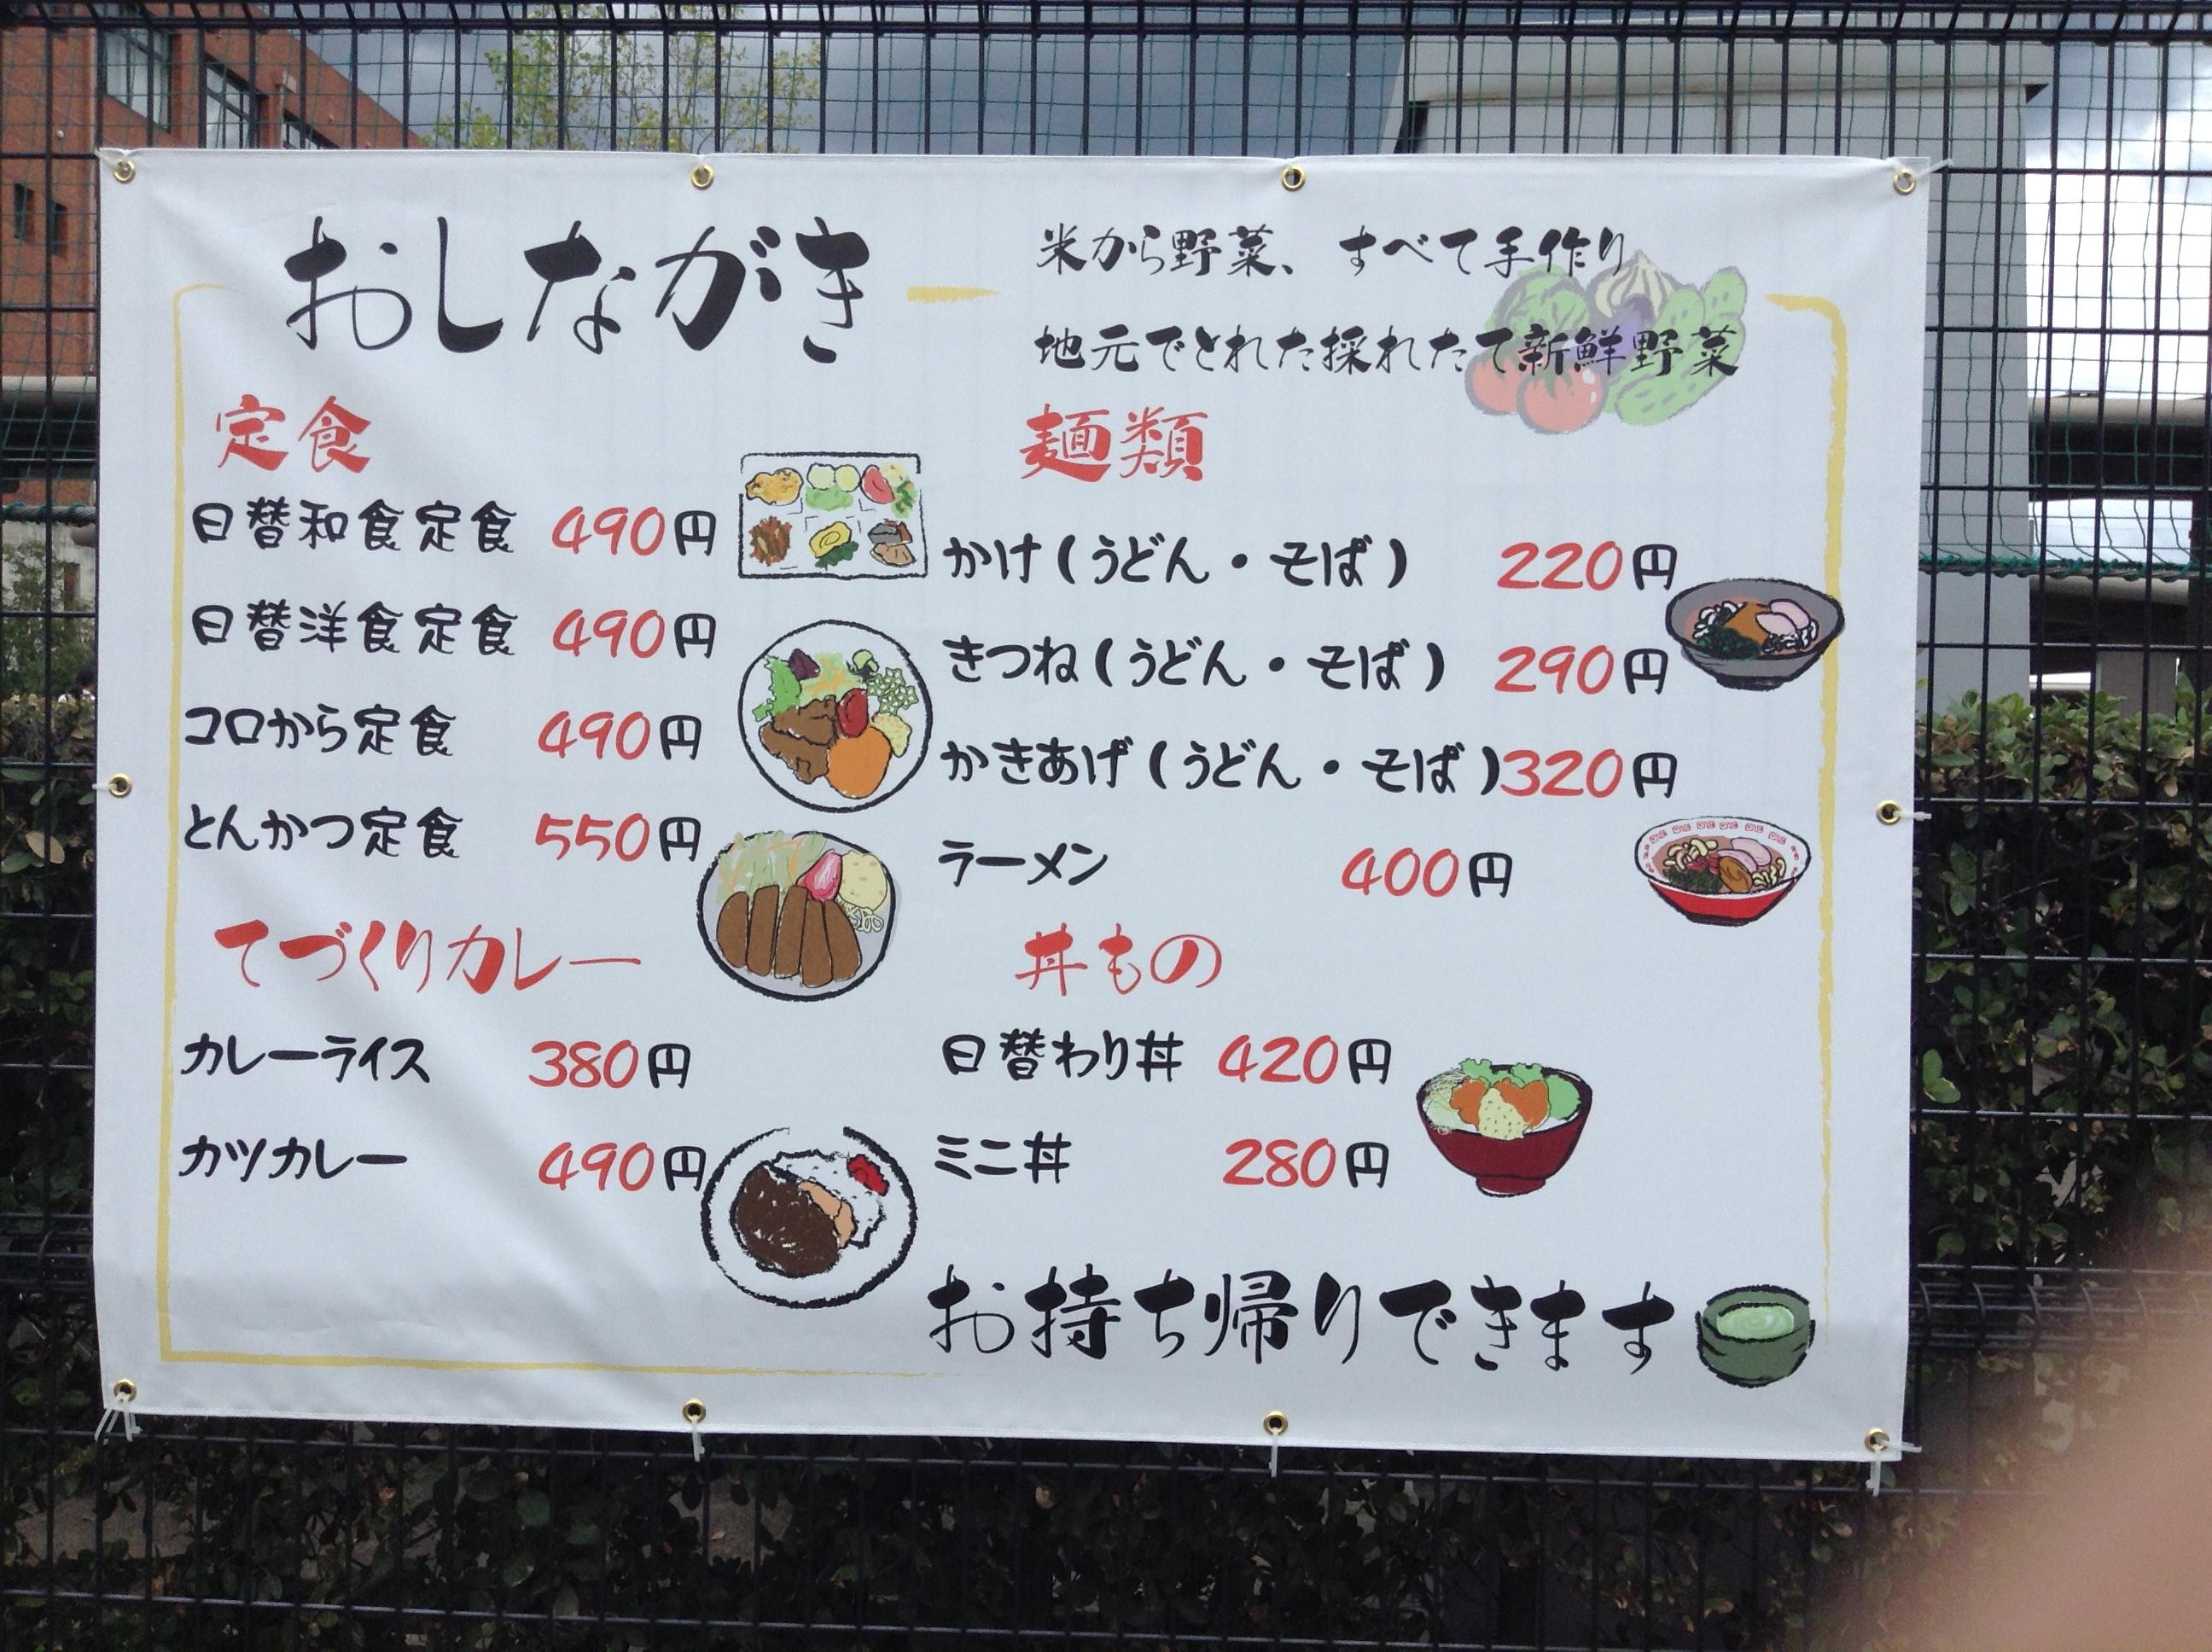 おしながき
米から野菜、すべて手作り
地元でとれた採れたて新鮮野菜
定食
日替和食定食 490円
日替洋食定食 490円
コロから定食 490円
とんかつ定食 550円
てづくりカレー
カレーライス 380円
カツカレー 490円
麺類
かけ(うどん・そば) 220円
きつね(うどん・そば) 290円
かきあげ(うどん・そば)320円
ラーメン 400円
丼もの
日替わり丼 420円
ミニ丼 280円
お持ち帰りできます